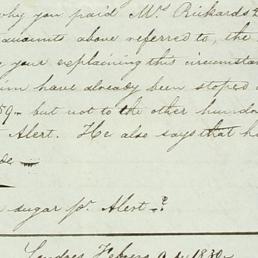 why you paid Mrs Rickards
accounts above referred to, the
your explaining this circumstan
him have already been stoped
59 - but not to the other hund
Alert. He also says that h
sugar pr. Alert -